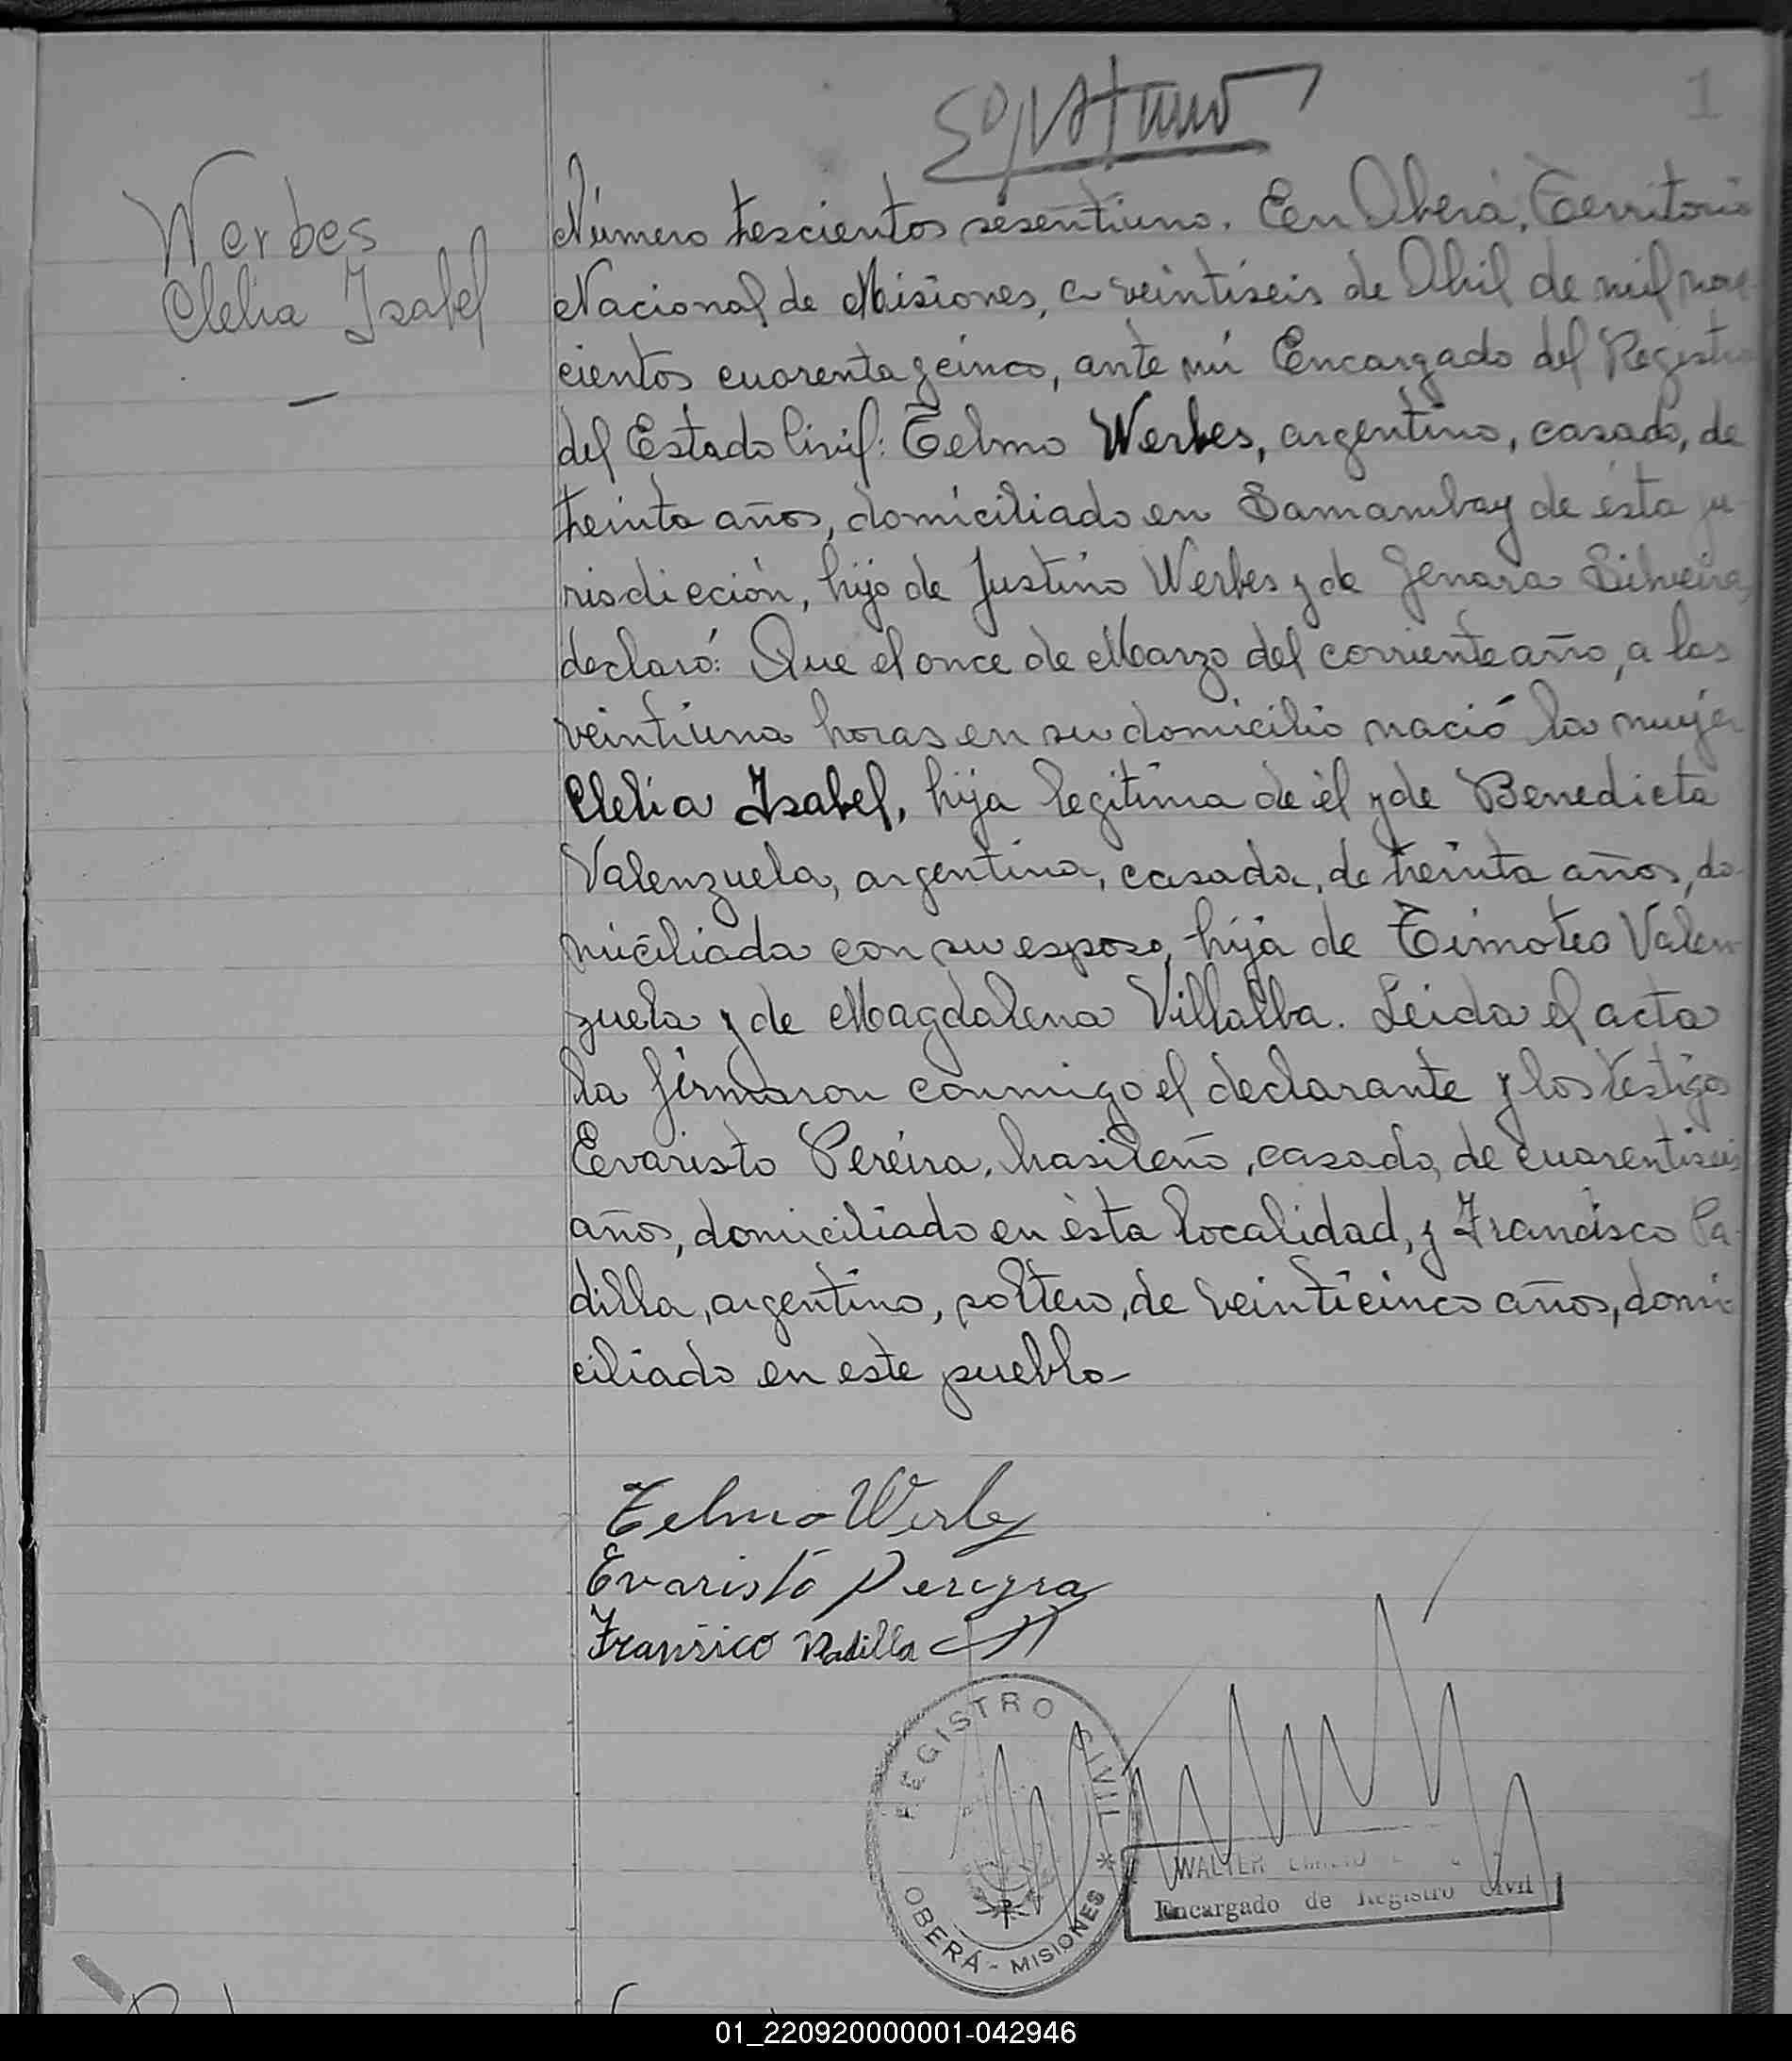 1
Werbes
Clelia Isabel
Número trescientos sesentiuno. En Oberá, Territorio
Nacional de Misiones, a veintiseis de Abril de mil nove-
cientos cuarenta y cinco, ante mí Encargado del Registro
del Estado Civil: Telmo Werbes, argentino, casado, de
treinta años, domiciliado en Samambay de ésta ju-
risdicción, hijo de Justino Werbes y de Genara Silveira,
declaró: Que el once de Marzo del corriente año, a las
veintiuna horas en su domicilio nació la mujer
Clelia Isabel, hija legitima de él y de Benedicta
Valenzuela, argentina, casada, de treinta años, do-
miciliada con su esposo, hija de Timoteo Valen-
zuela y de Magdalena Villalba. Leida el acta
la firmaron conmigo el declarante y los testigos
Evaristo Pereira, brasileño, casado, de cuarentiseis
años, domiciliado en ésta localidad, y Francisco Pa-
dilla, argentino, soltero, de veinticinco años, domi-
ciliado en este pueblo-
Telmo Werbes
Evaristo Pereyra
Fransico Padilla
REGISTRO CIVIL
OBERÁ - MISIONES
WALTER
Encargado de Registro Civil
01_220920000001-042946